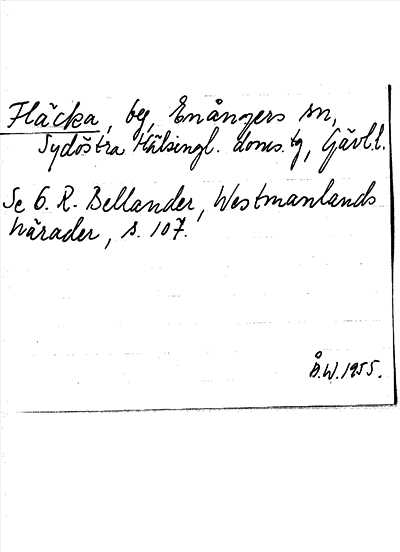 Fläcka, beg, Enångers sn,
Sydöstra Hälsingl. doms.tg, Gävl.l.
Se G. R. Bellander, Westmanlands
härader, s. 107.
Å.W. 1955.